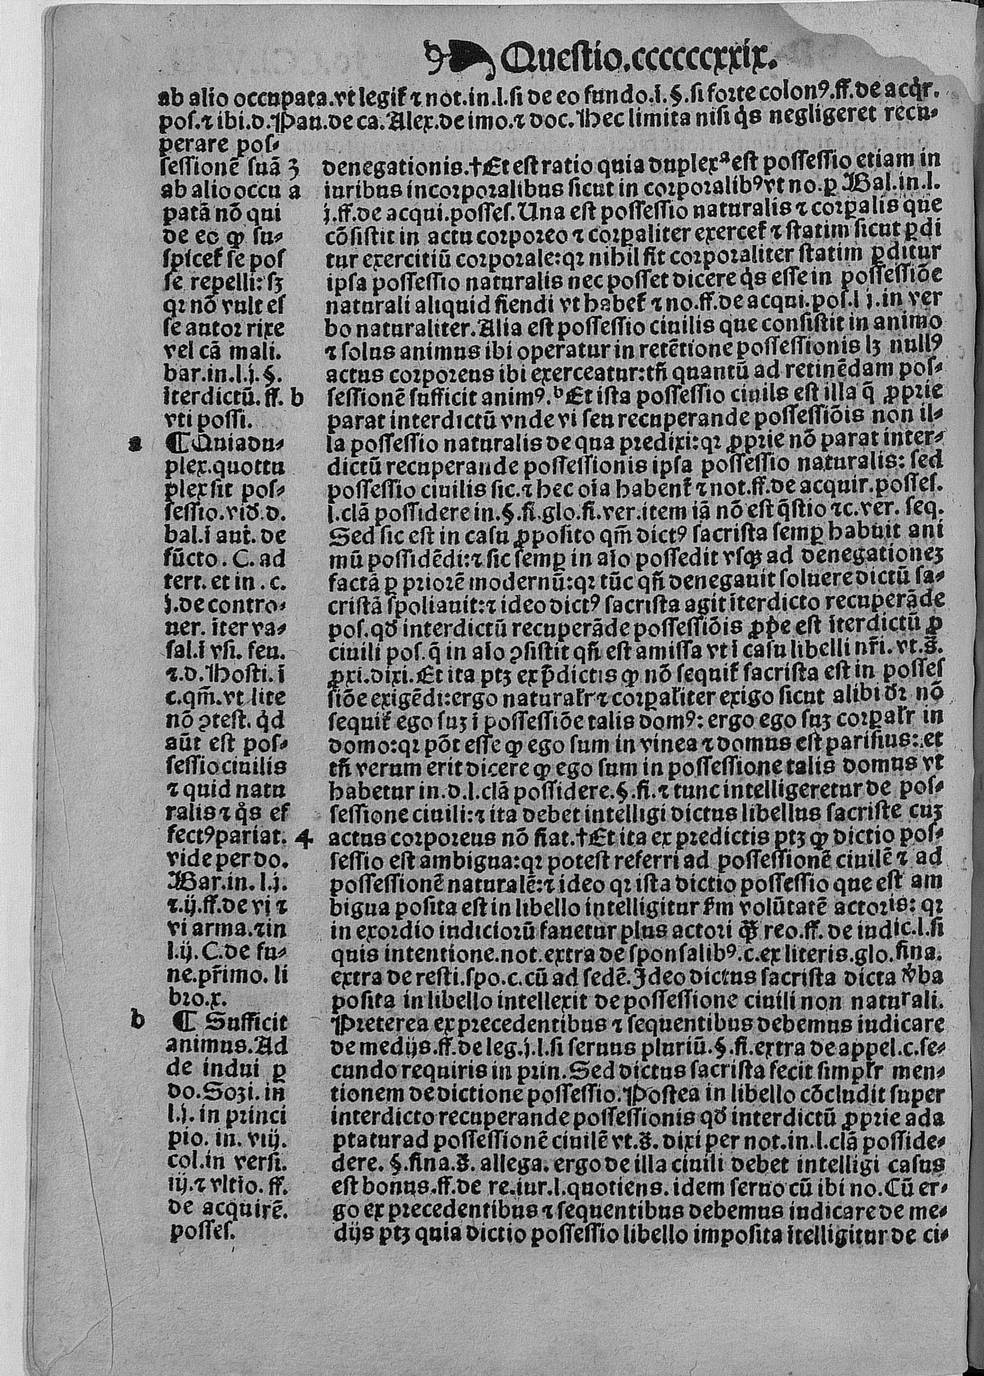 Questio.ccccccxxix.
ab alio occupata.vt legit̃ ⁊ not.in.l.si de eo fundo.ī.§.si forte colonꝰ.ff.de acq̇r.
pos.⁊ ibi.d.Pau.de ca.Alex.de imo.⁊ doc.Hec limita nisi q̇s negligeret recu-
perare pos-
sessionē suā
ab alio occu
patā nō qui
de eo ꝙ su-
spicet̃ se pos
se repelli:sꝫ
qꝛ nō vult es
se autor rixe
vel cā mali.
bar.in.l.j.§.
īterdictū.ff.
vti possi.
a
¶Quia du-
plex.quottu
plex sit pos-
sessio.vid̄.d.
bal.ī aut̄.de
fūcto.C.ad
tert.et in.c.
j.de contro-
uer.īter va-
sal.ī vsi.feu.
⁊.d.Hosti.ī
c.qm̄.vt lite
nō ↄtest.q̇d
aūt est pos-
sessio ciuilis
⁊ quid natu
ralis ⁊ q̇s ef
fectꝰ pariat.
vide per do.
Bar.in.l.j.
⁊.ij.ff.de vi ⁊
vi arma.⁊ in
l.ij.C.de fu-
ne.pr̄imo.li
bro.x.
b
¶ Sufficit
animus.Ad
de indui p̱
do.Sozi.in
l.j.in princi
pio.in.viij.
col.in versi.
iij.⁊ vltio.ff.
de acquirē.
posses.
3 denegationis.†Et est ratio quia duplexᵃ est possessio etiam in
a iuribus incorporalibus sicut in corporalibꝰ vt no.p̱ Bal.in.l.
j.ff.de acqui.posses.Una est possessio naturalis ⁊ corp̱alis que
cōsistit in actu corporeo ⁊ corp̱aliter exercet̃ ⁊ statim sicut p̱di
tur exercitiū corporale:qꝛ nihil fit corporaliter statim p̱ditur
ipsa possessio naturalis nec posset dicere q̇s esse in possessiōe
naturali aliquid fiendi vt habet̃ ⁊ no.ff.de acqui.pos.l j.in ver
bo naturaliter.Alia est possessio ciuilis que consistit in animo
⁊ solus animus ibi operatur in retētione possessionis lꝫ nullꝰ
actus corporeus ibi exerceatur:tñ quantū ad retinēdam pos-
b sessionē sufficit animꝰ.ᵇEt ista possessio ciuils est illa q̄ ꝓprie
parat interdictū vnde vi seu recuperande possessiōis non il-
la possessio naturalis de qua predixi:qꝛ ꝓprie nō parat inter-
dictū recuperande possessionis ipsa possessio naturalis: sed
possessio ciuilis sic.⁊ hec oīa habent̃ ⁊ not.ff.de acquir.posses.
l.clā possidere in.§.fi.glo.fi.ver.item iā nō est q̄stio ⁊c.ver. seq.
Sed sic est in casu ꝓposito qm̄ dictꝰ sacrista semp̱ habuit ani
mū possidēdi:⁊ sic semp̱ in aīo possedit vsqꝫ ad denegationeꝫ
factā p̱ priorē modernū:qꝛ tūc qñ denegauit soluere dictū sa-
cristā spoliauit:⁊ ideo dictꝰ sacrista agit īterdicto recuperāde
pos.qd̄ interdictū recuperāde possessiōis ꝓpe est īterdictū ꝓ
ciuili pos.q̄ in aīo ↄsistit qñ est amissa vt ī casu libelli nr̄i.vt.s̄.
ꝓxi.dixi.Et ita ptꝫ ex p̄dictis ꝙ nō sequit̃ sacrista est in posses
siōe exigēdi:ergo naturalr̄ ⁊ corp̱aliter exigo sicut alibi dr̄ nō
sequit̃ ego suꝫ ī possessiōe talis domꝰ: ergo ego suꝫ corp̱alr̄ in
domo:qꝛ pōt esse ꝙ ego sum in vinea ⁊ domus est parisius:et
tñ verum erit dicere ꝙ ego sum in possessione talis domus vt
habetur in.d.l.clā possidere.§.fi.⁊ tunc intelligeretur de pos-
sessione ciuili:⁊ ita debet intelligi dictus libellus sacriste cuꝫ
4 actus corporeus nō fiat.†Et ita ex predictis ptꝫ ꝙ dictio pos-
sessio est ambigua:qꝛ potest referri ad possessionē ciuilē ⁊ ad
possessionē naturalē:⁊ ideo qꝛ ista dictio possessio que est am
bigua posita est in libello intelligitur s̄m volūtatē actoris: qꝛ
in exordio iudiciorū fauetur plus actori q̄ꝫ reo.ff.de iudic.l.si
quis intentione.not.extra de sponsalibꝰ.c.ex literis.glo.fina.
extra de resti.spo.c.cū ad sedē.Ideo dictus sacrista dicta v̄ba
posita in libello intellexit de possessione ciuili non naturali.
Preterea ex precedentibus ⁊ sequentibus debemus iudicare
de medijs.ff.de leg.j.l.si seruus pluriū.§.fi.extra de appel.c.se-
cundo requiris in prin.Sed dictus sacrista fecit simplr̄ men-
tionem de dictione possessio.Postea in libello cōcludit super
interdicto recuperande possessionis qd̄ interdictū ꝓprie ada
ptatur ad possessionē ciuilē vt.s̄. dixi per not.in.l.clā posside-
dere. §.fina.s̄. allega. ergo de illa ciuili debet intelligi casus
est bonus.ff.de re.iur.l.quotiens.idem seruo cū ibi no.Cū er-
go ex precedentibus ⁊ sequentibus debemus iudicare de me-
dijs ptꝫ quia dictio possessio libello imposita ītelligitur de ci-